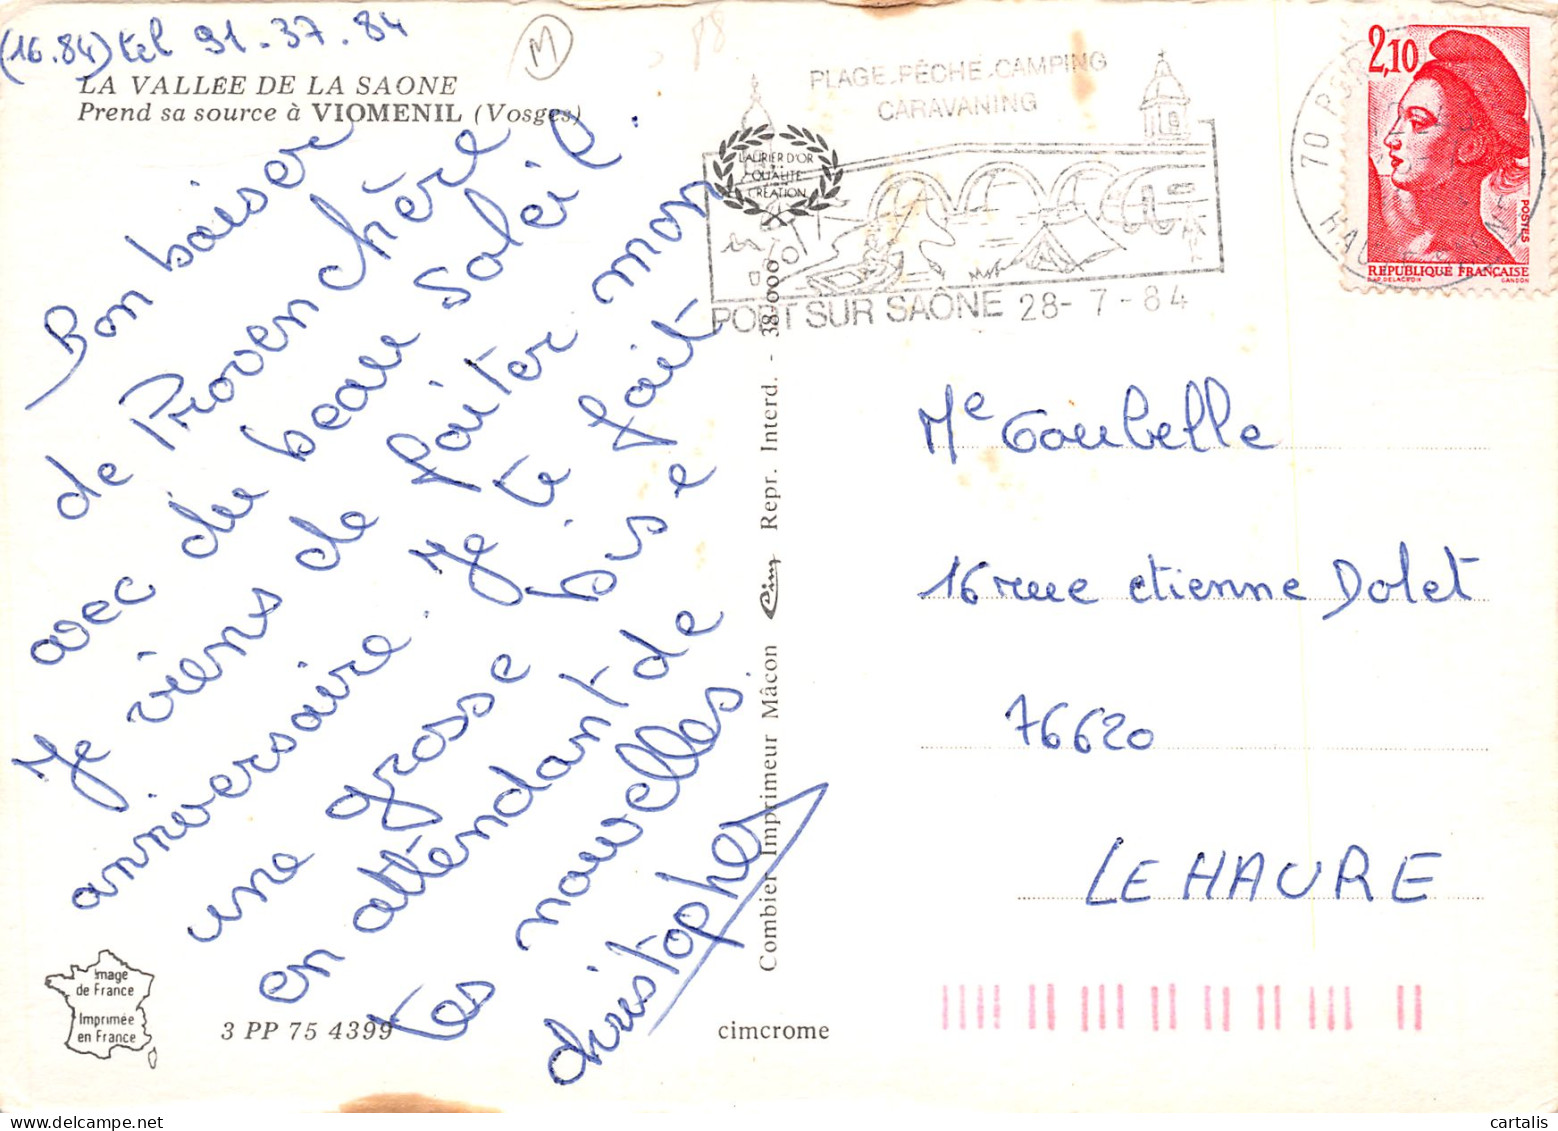 (16.84) tel 91.37.84
M
LA VALLÉE DE LA SAONE
Prend sa source à VIOMENIL (Vosges)
Bon baiser
de Provenchère
avec du beau Soleil.
Je viens de faiter mon
anniversaire. Je te fait
une grosse bise
en attendant de
tes nouvelles.
christopher
Image
de France
Imprimée
en France
3 PP 75 4399
cimcrome
Combier Imprimeur Mâcon Cim Repr. Interd. - 38.000
LAURIER D'OR
QUALITÉ
CRÉATION
PLAGE-PÊCHE-CAMPING
CARAVANING
PORT SUR SAÔNE 28-7-84
70
2,10
POSTES
RÉPUBLIQUE FRANÇAISE
D'AP. DELACROIX GANDON
Me Goubelle
16 rue etienne Dolet
76620
LE HAVRE
cartalis